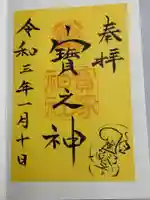 奉拝
寳之神
令和三年一月十日